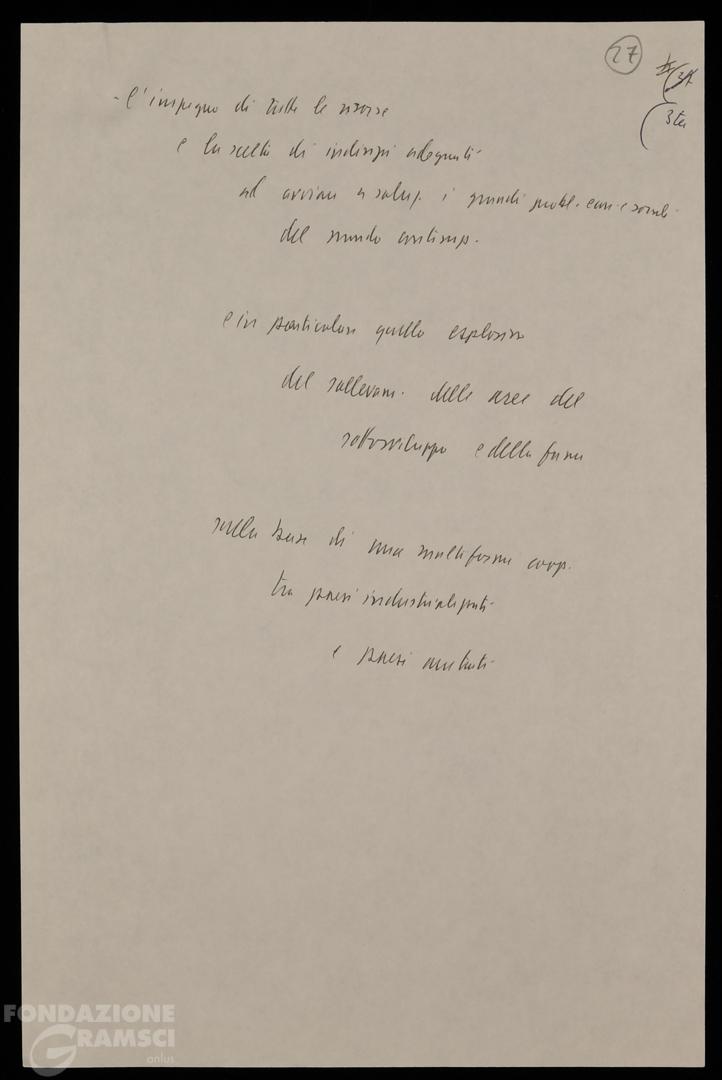 27
3ter
- l'impegno di tutte le risorse
e la scelta di indirizzi adeguati
ad avviare a soluz. i grandi probl. econ. e sociali
del mondo contemp.
e in particolare quello esplosivo
del sollevam. delle aree del
sottosviluppo e della fame
sulla base di una multiforme coop.
tra paesi industrializzati
e paesi emergenti
FONDAZIONE
GRAMSCI
onlus